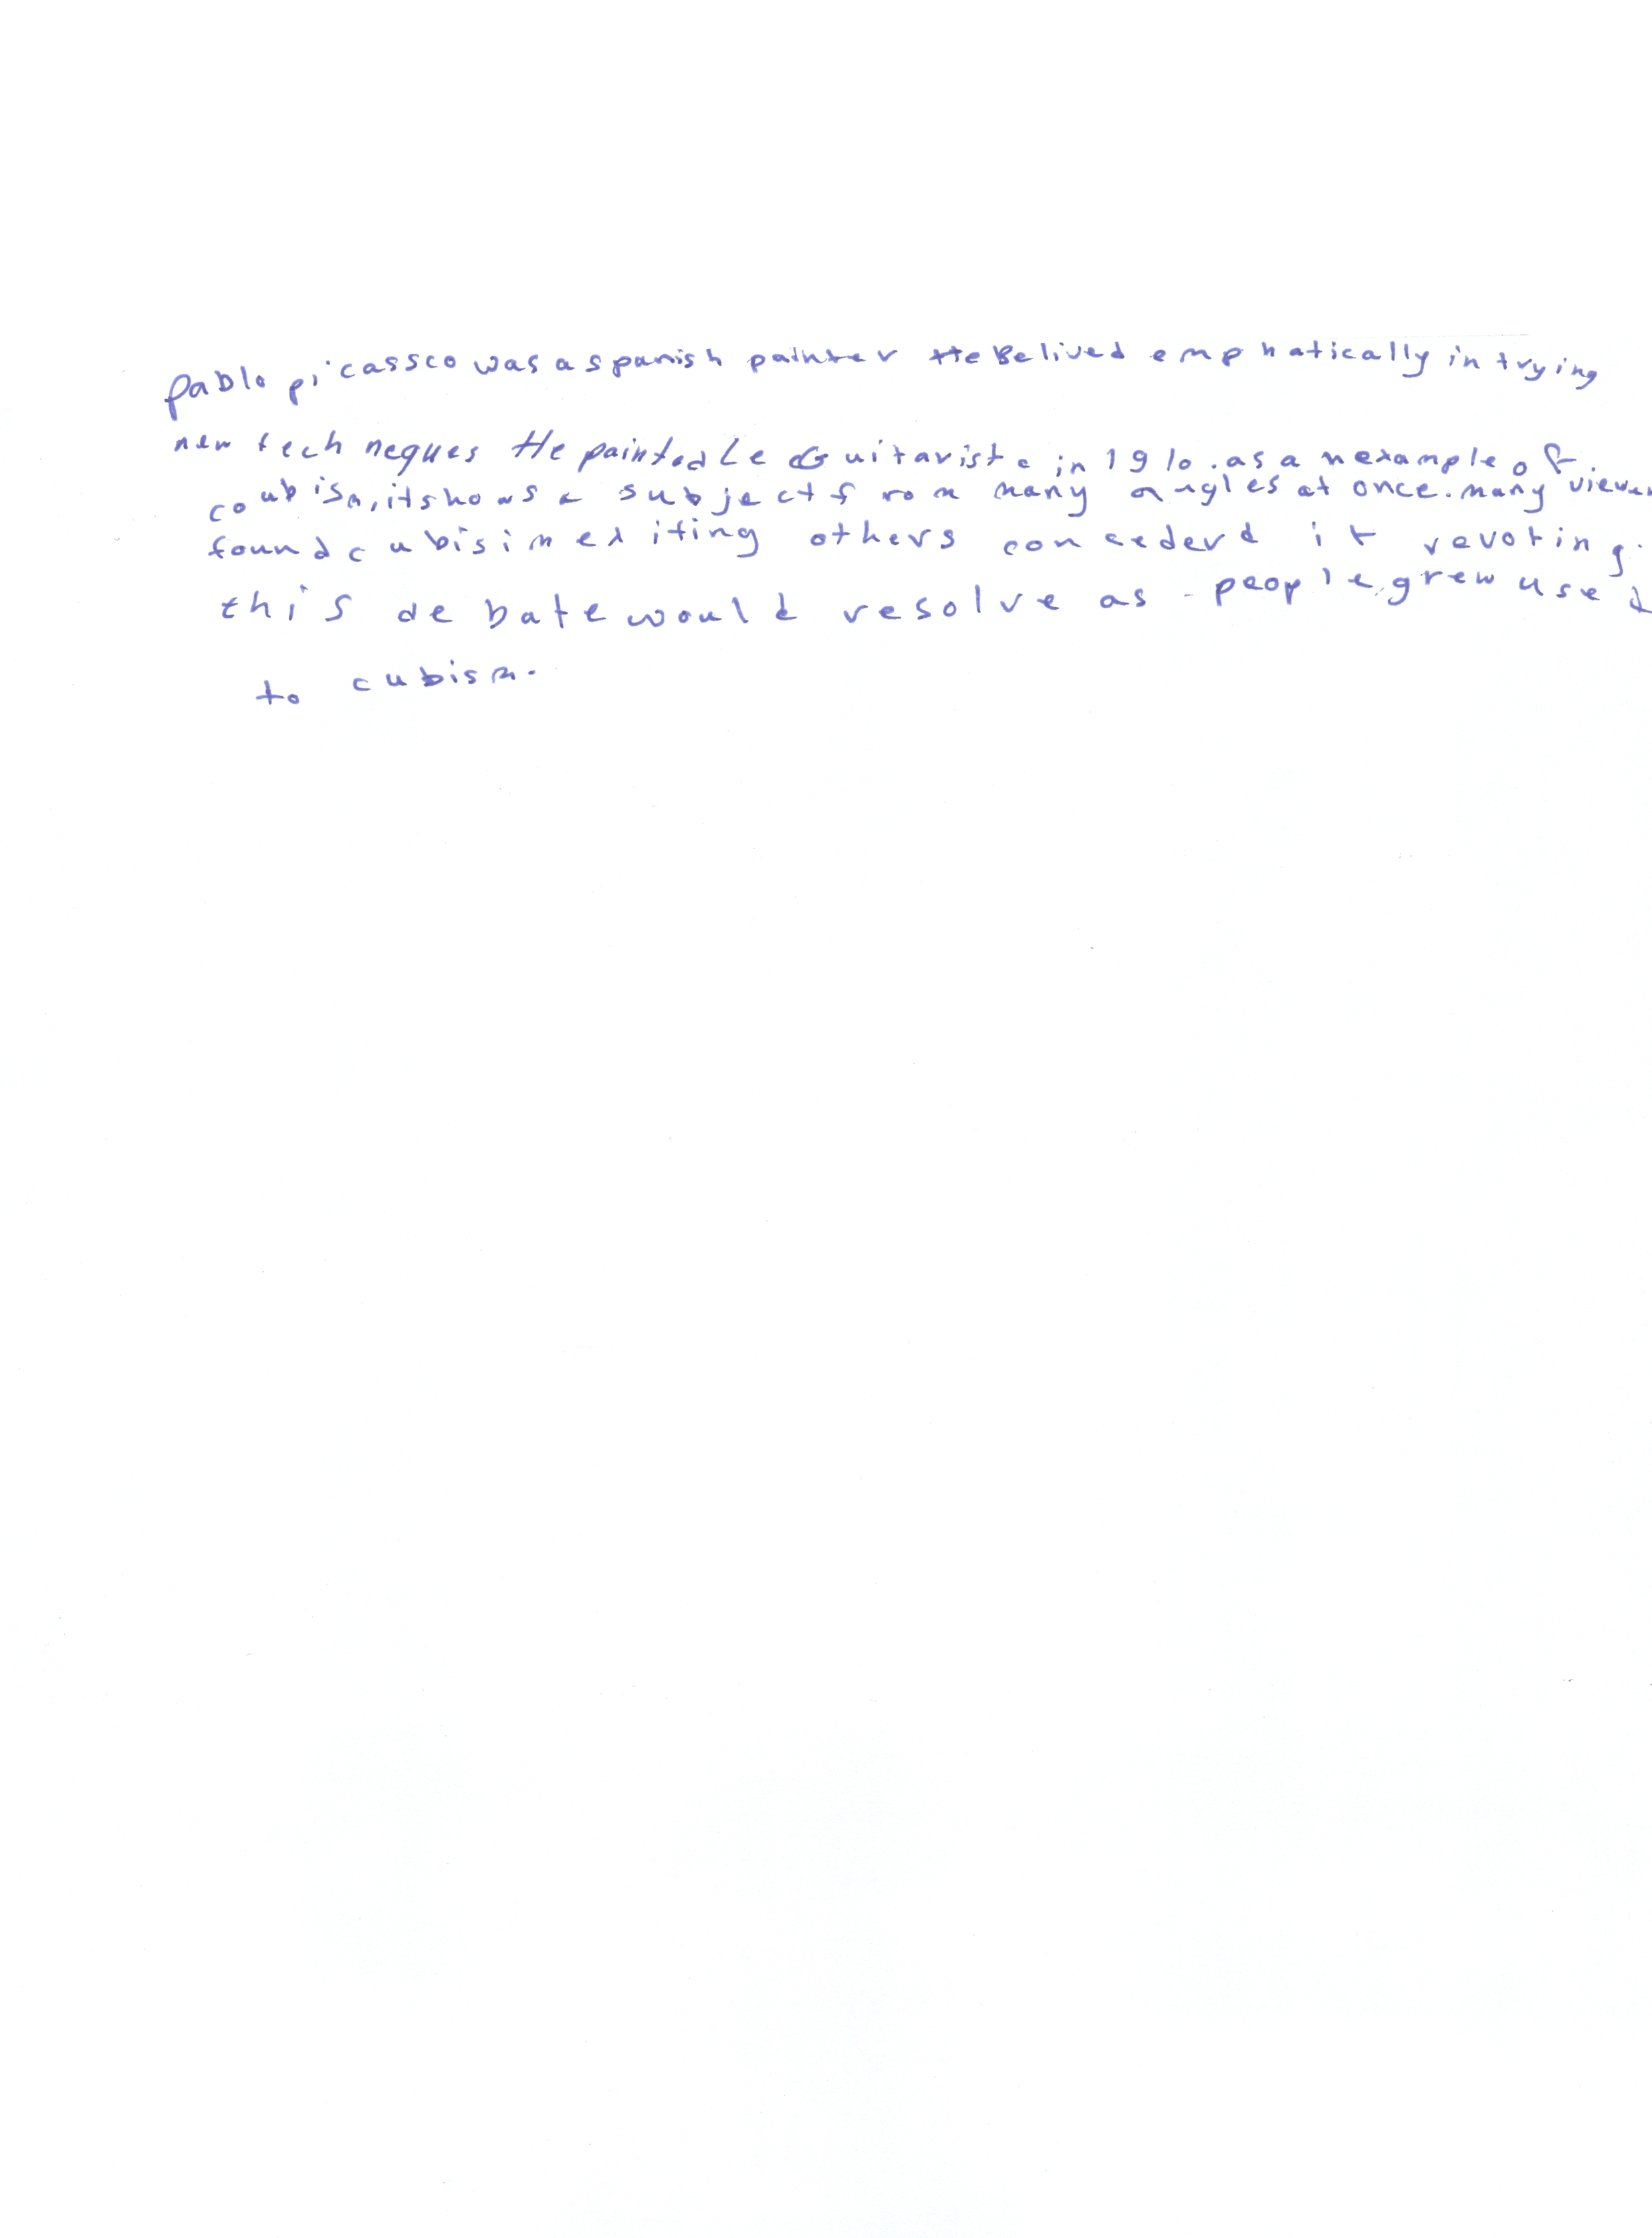 pablo picassco was a spanish painter He Belived emphatically in trying
new techneques He painted Le Guitariste in 1910. as an example of
coubism, it shows a subject from many angles at once. many viewer
found cubisim exiting others concederd it revoting.
this debate would resolve as people grew used
to cubism.